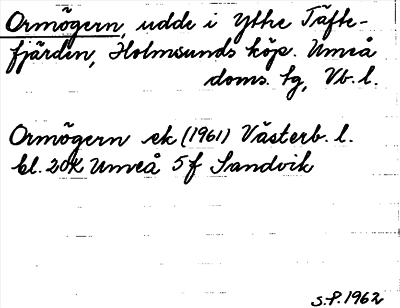 Ormögern, udde i Yttre Täfte-
fjärden, Holmsunds köp. Umeå
doms. tg, Vb. l.
Ormögern ek (1961) Västerb. l.
bl. 20K Umeå 5f Sandvik
S.P. 1962